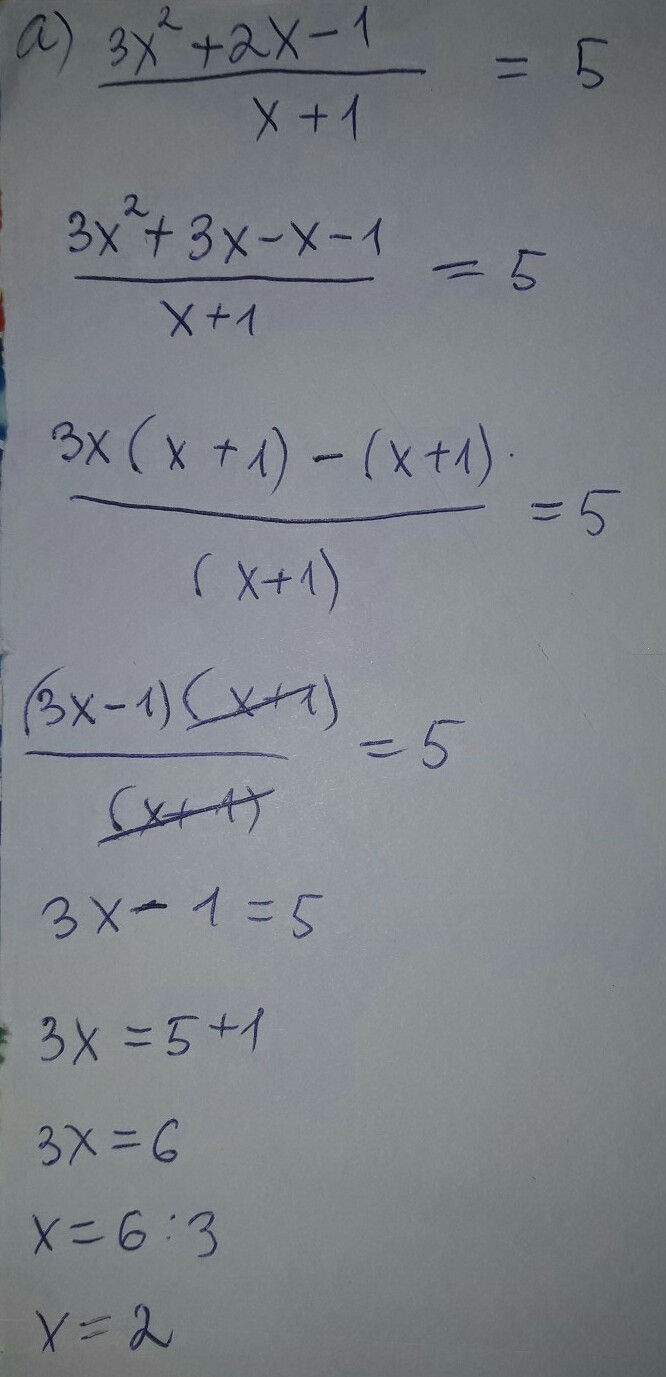 a) \frac{3x^2+2x-1}{x+1} = 5
\frac{3x^2+3x-x-1}{x+1} = 5
\frac{3x(x+1)-(x+1)}{(x+1)} = 5
\frac{(3x-1)(x+1)}{(x+1)} = 5
3x-1=5
3x=5+1
3x=6
x=6:3
x=2